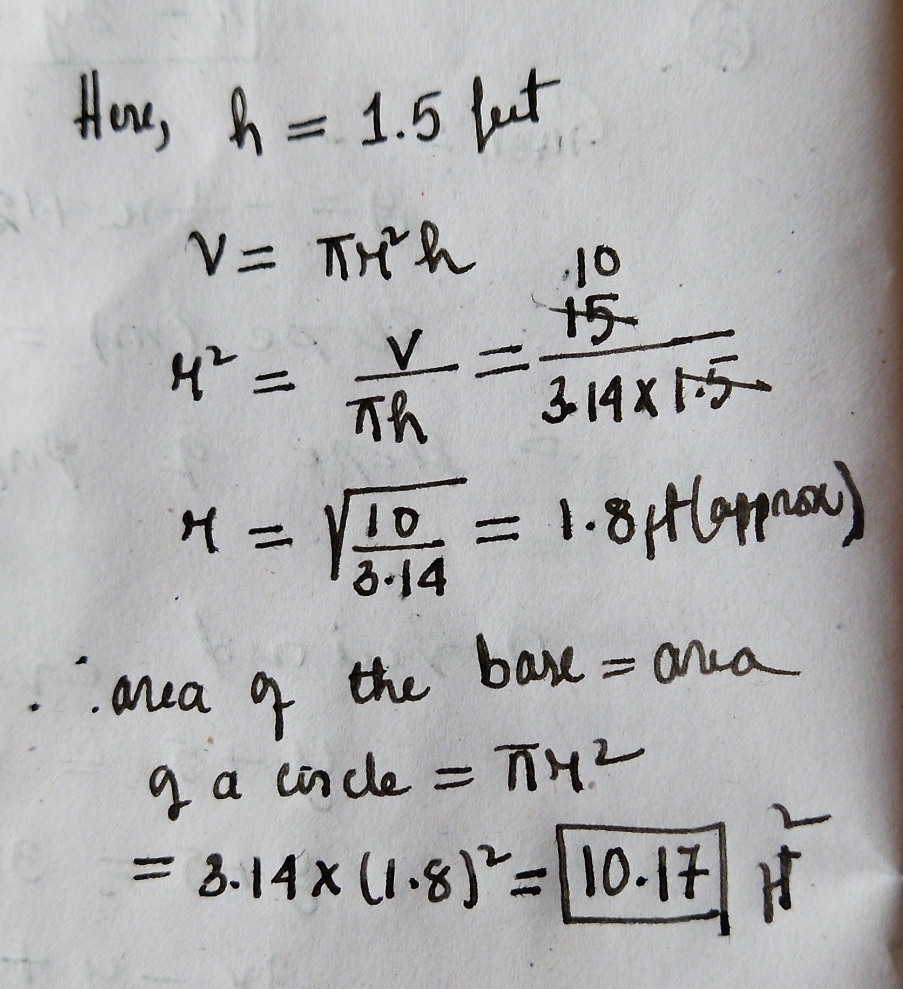 Here, h = 1.5 feet
V = πr²h
r² = V/πh = 10 15/3.14 x 1.5
r = √10/3.14 = 1.8 ft (approx)
∴ area of the base = area
of a circle = πr²
= 3.14 x (1.8)² = 10.17 ft²